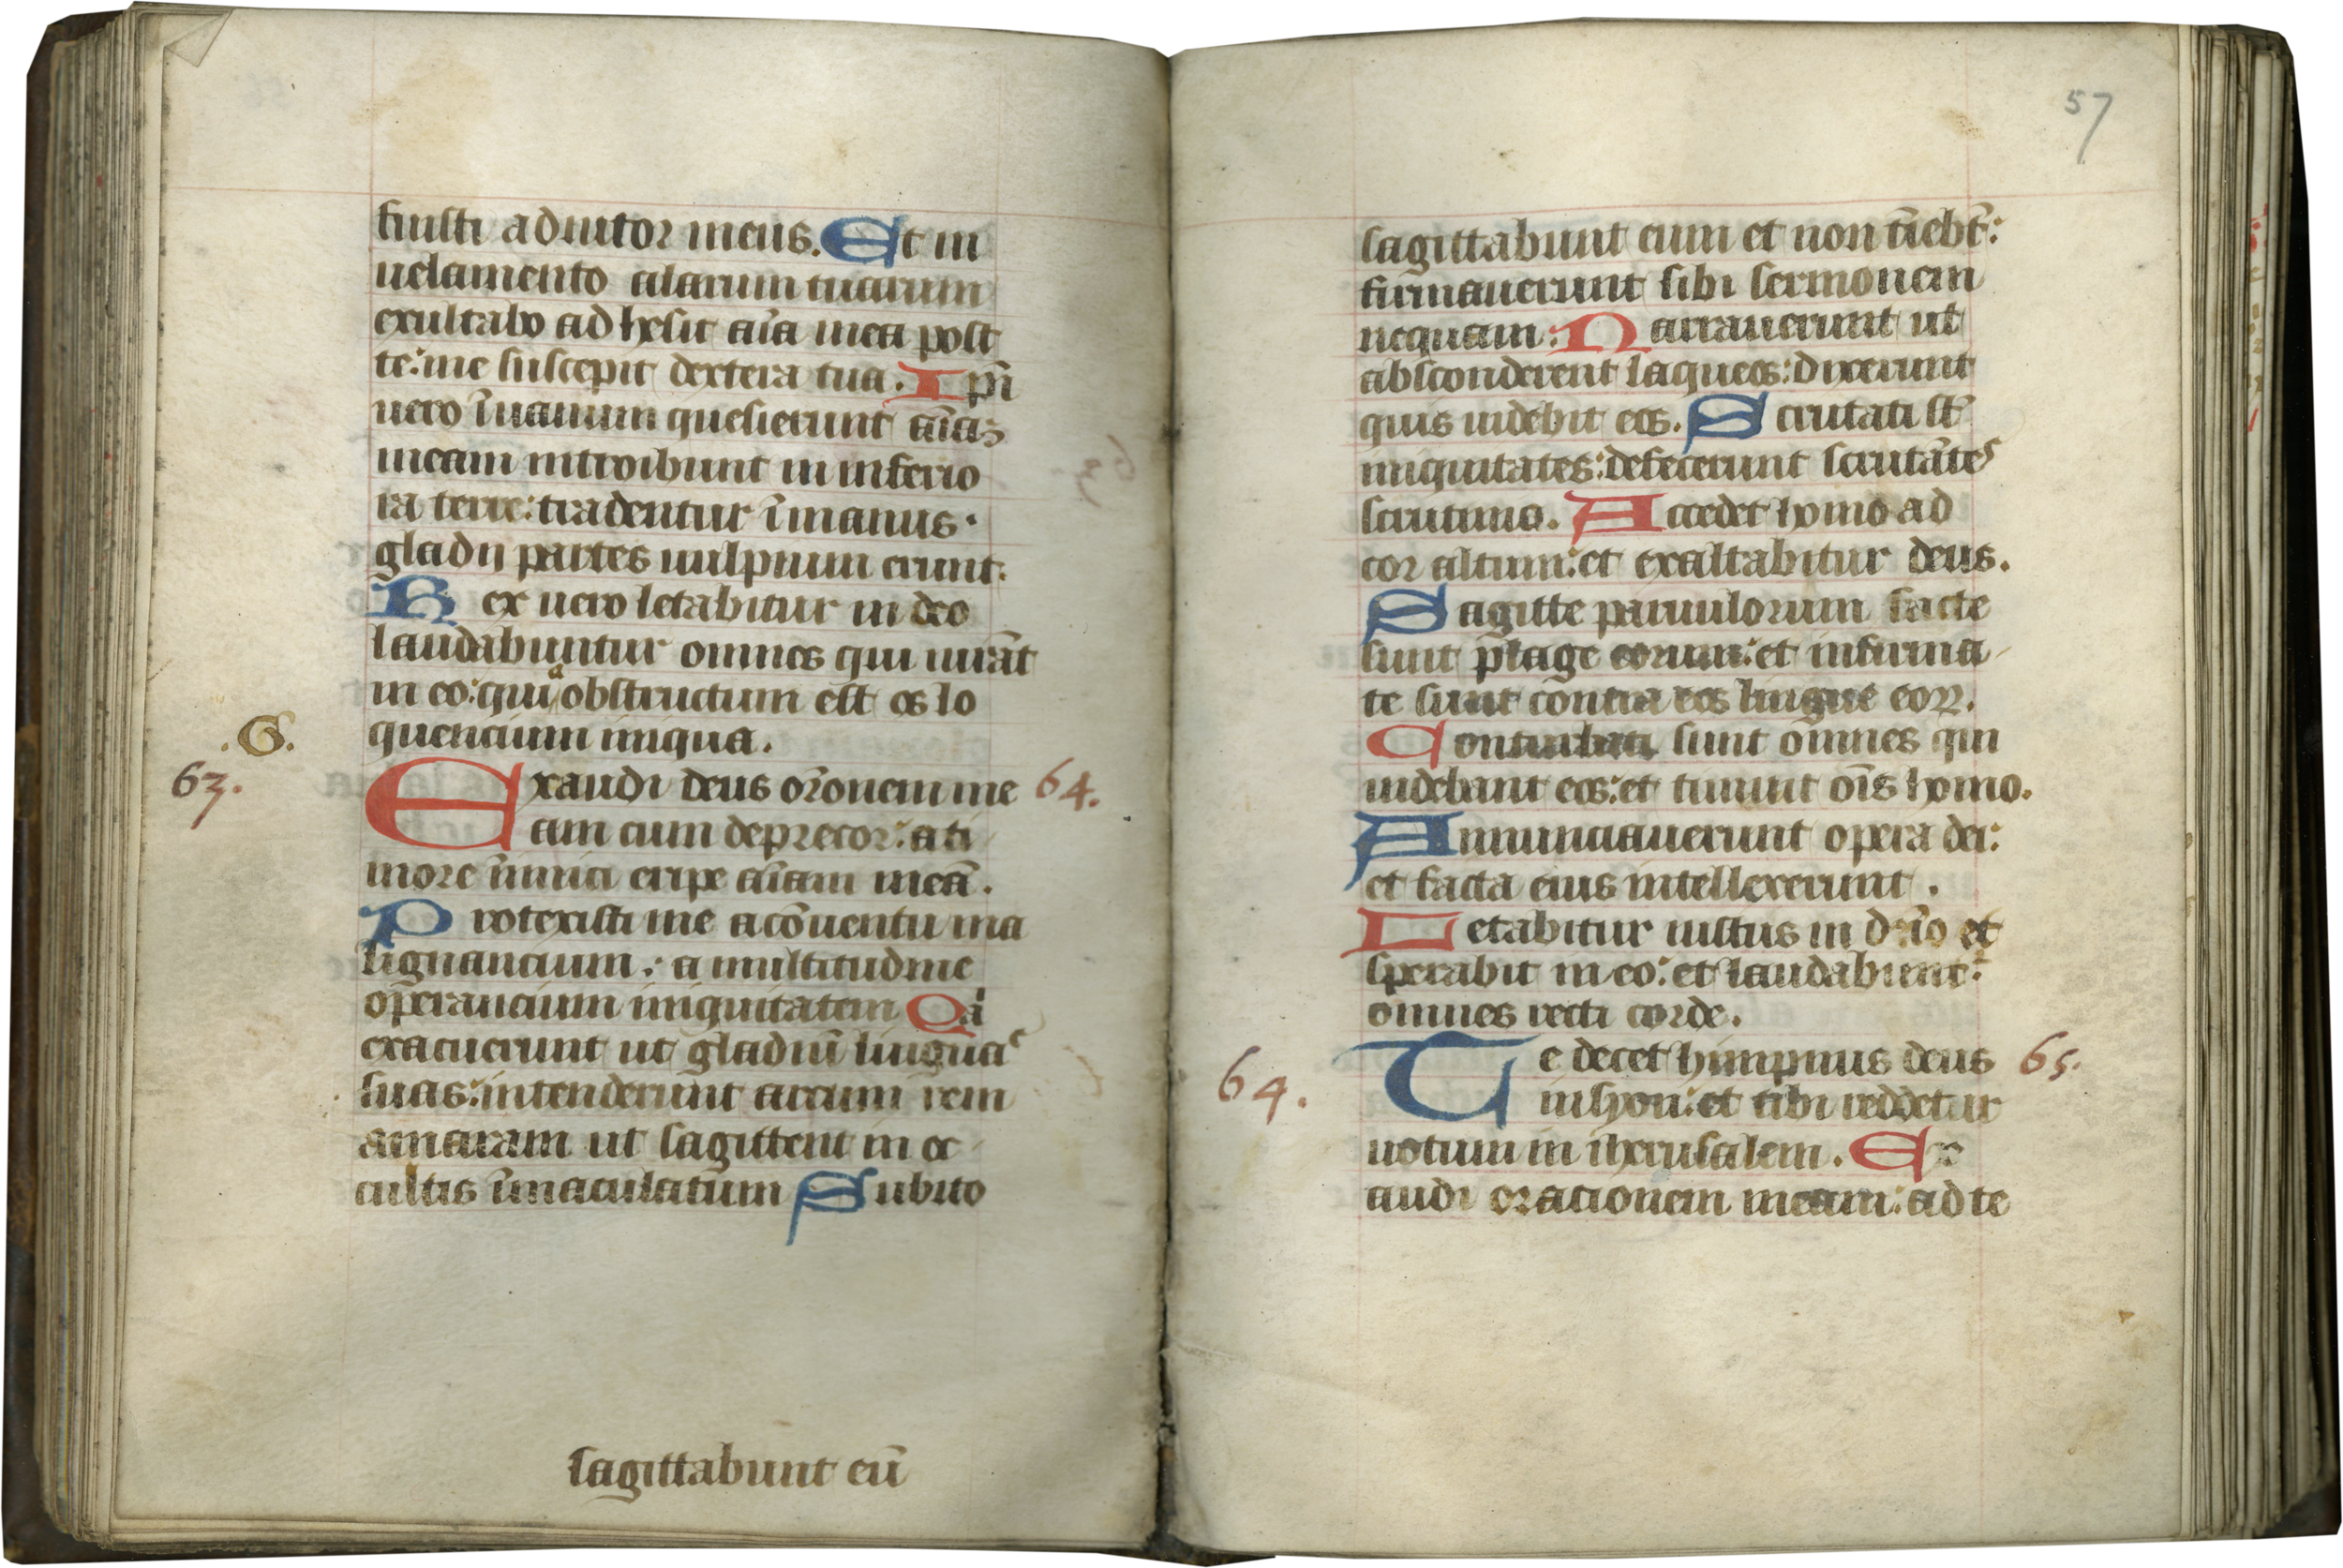 fuisti adiutor meus. Et in
uelamento alarum tuarum
exultabo ad hesit aīa mea post
te: me suscepit dextera tua. Ipī
uero īuanum quesierunt aīaʒ
meam introibunt in inferio
ra terre: tradentur īmanus.
gladii partes uulpium erunt.
Rex uero letabitur in deo
laudabuntur omnes qui iurāt
in eo: quiᵃ obstructum est os lo
quencium iniqua.
.G.
63.
Exaudi deus orōnem me
64.
am cum deprecor: a ti
more īnimici eripe aīam meā.
Protexisti me a cōuentu ma
lignancium: a multitudine
operancium iniquitatem Qⁱa
exacuerunt ut gladiū linguas
suas: intenderunt arcum rem
amaram ut sagittent in oc
cultis īmaculatum Subito
sagittabunt eū
57
sagittabunt eum et non tīebt̄:
firmauerunt sibi sermonem
nequam: Narrauerunt ut
absconderent laqueos: dixerunt
quis uidebit eos. Scrutati st̄
iniquitates: defecerunt scrutātes
scrutinio. Accedet homo ad
cor altum: et exaltabitur deus.
Sagitte paruulorum facte
sunt plage eorum: et infirma
te sunt contra eos lingue eoꝝ.
Conturbati sunt omnes qui
uidebant eos: et timuit oīs homo.
Annunciauerunt opera dei:
et facta eius intellexerunt.
Letabitur iustus in dn̄o et
sperabit in eo: et laudabunt᷑
omnes recti corde.
64.
Te decet himpnus deus
65.
in syon: et tibi reddetur
uotum in iherusalem. Ex
audi oracionem meam: ad te